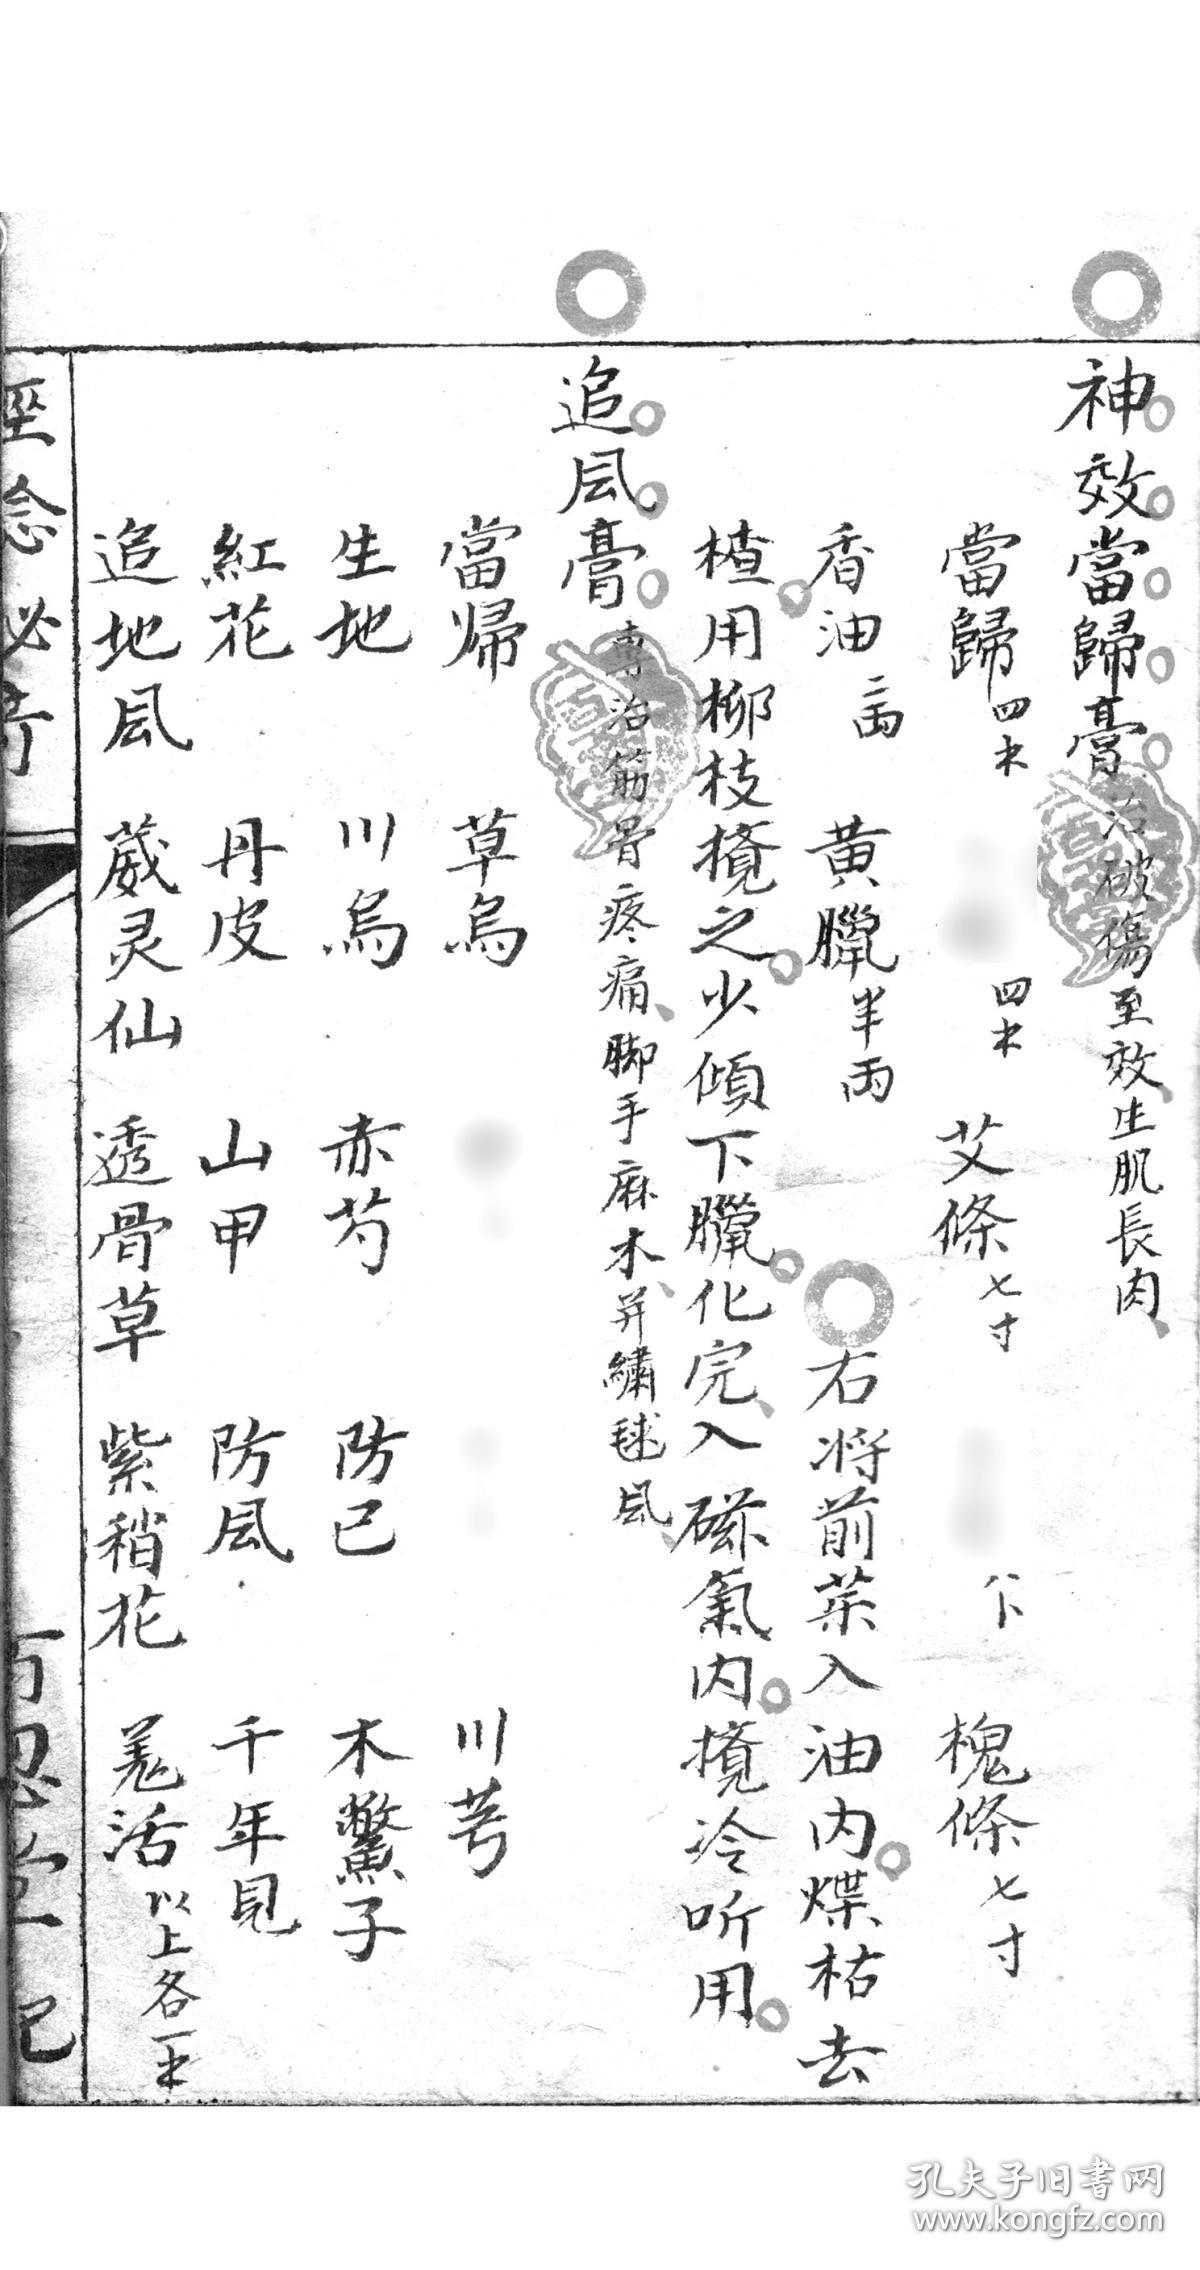 神效當歸膏 治破傷至效生肌長肉
當歸 四木 四木 艾條 七寸 槐條 七寸
香油 二両 黃臘 半両 右将前菜入油内煠枯去
楂用柳枝攪之少傾下臘化完入磁氣内攪冷听用
追風膏 專治筋骨疼痛脚手麻木并繡毬風
當㷌 草烏 川芎
生地 川烏 赤芍 防己 木鱉子
紅花 丹皮 山甲 防風 千年見
追地風 葳灵仙 透骨草 紫稍花 羌活 以上各一木
孔夫子旧书网
www.kongfz.com